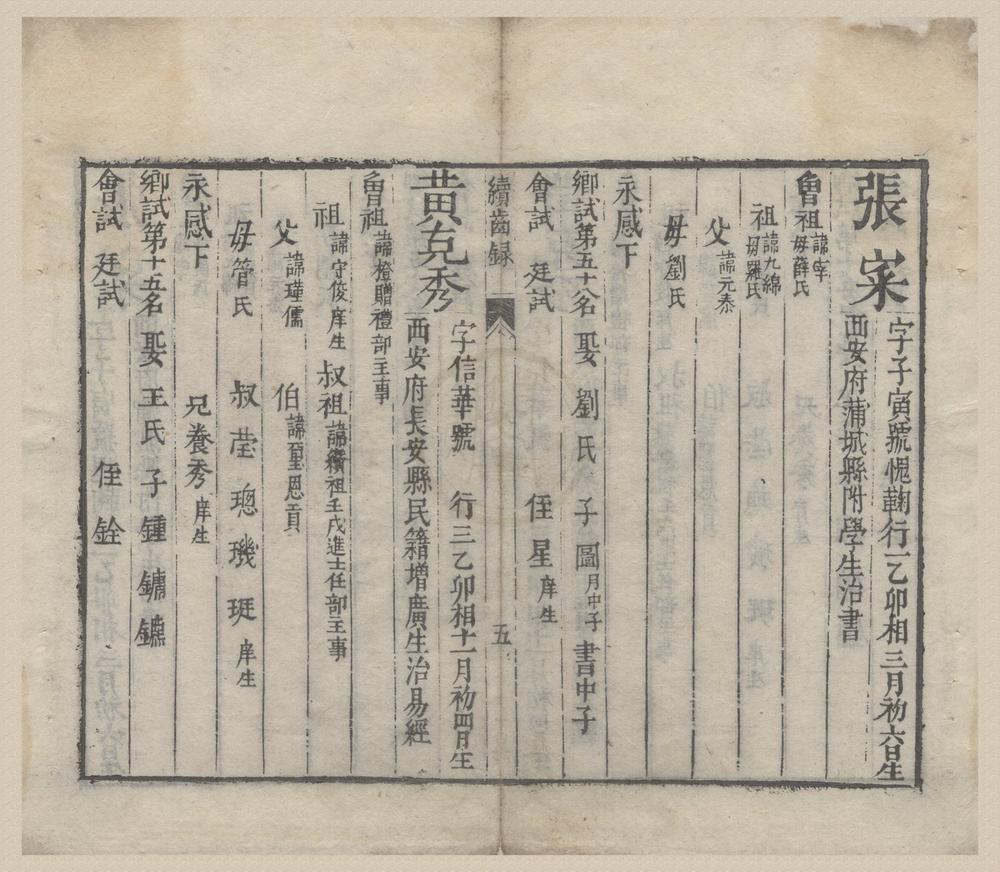 張宷
字子寅號愧蘜行一乙卯相三月初六日生
西安府蒲城縣附學生治書
曾祖諱宰
母薛氏
祖諱九綿
母羅氏
父諱元泰
母劉氏
永感下
鄉試第五十八名 娶劉氏 子圖月中子 書中子
會試 廷試 侄星庠生
續齒録 五
黄克秀
字信華號 行三乙卯相十一月初四日生
西安府長安縣民籍增廣生治易經
曾祖諱橙贈禮部主事
祖諱守俊庠生 叔祖諱纘祖壬戌進士任部主事
父諱瑾儒 伯諱璽恩貢
母管氏 叔瑩 璁 璣 珽庠生
永感下 兄養秀庠生
鄉試第十五名 娶王氏 子鍾 鏽 鑣
會試 廷試 侄銓